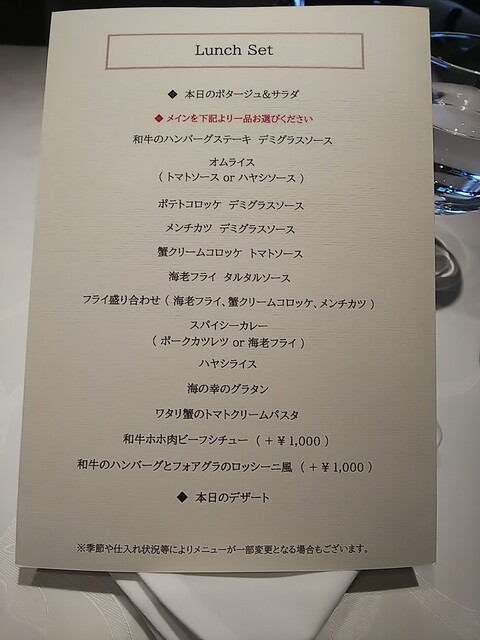 Lunch Set
◆ 本日のポタージュ&サラダ
◆ メインを下記より一品お選びください
和牛のハンバーグステーキ デミグラスソース
オムライス
( トマトソース or ハヤシソース )
ポテトコロッケ デミグラスソース
メンチカツ デミグラスソース
蟹クリームコロッケ トマトソース
海老フライ タルタルソース
フライ盛り合わせ ( 海老フライ、蟹クリームコロッケ、メンチカツ )
スパイシーカレー
( ポークカツレツ or 海老フライ )
ハヤシライス
海の幸のグラタン
ワタリ蟹のトマトクリームパスタ
和牛ホホ肉ビーフシチュー ( +¥1,000 )
和牛のハンバーグとフォアグラのロッシーニ風 ( +¥1,000 )
◆ 本日のデザート
※季節や仕入れ状況等によりメニューが一部変更となる場合もございます。